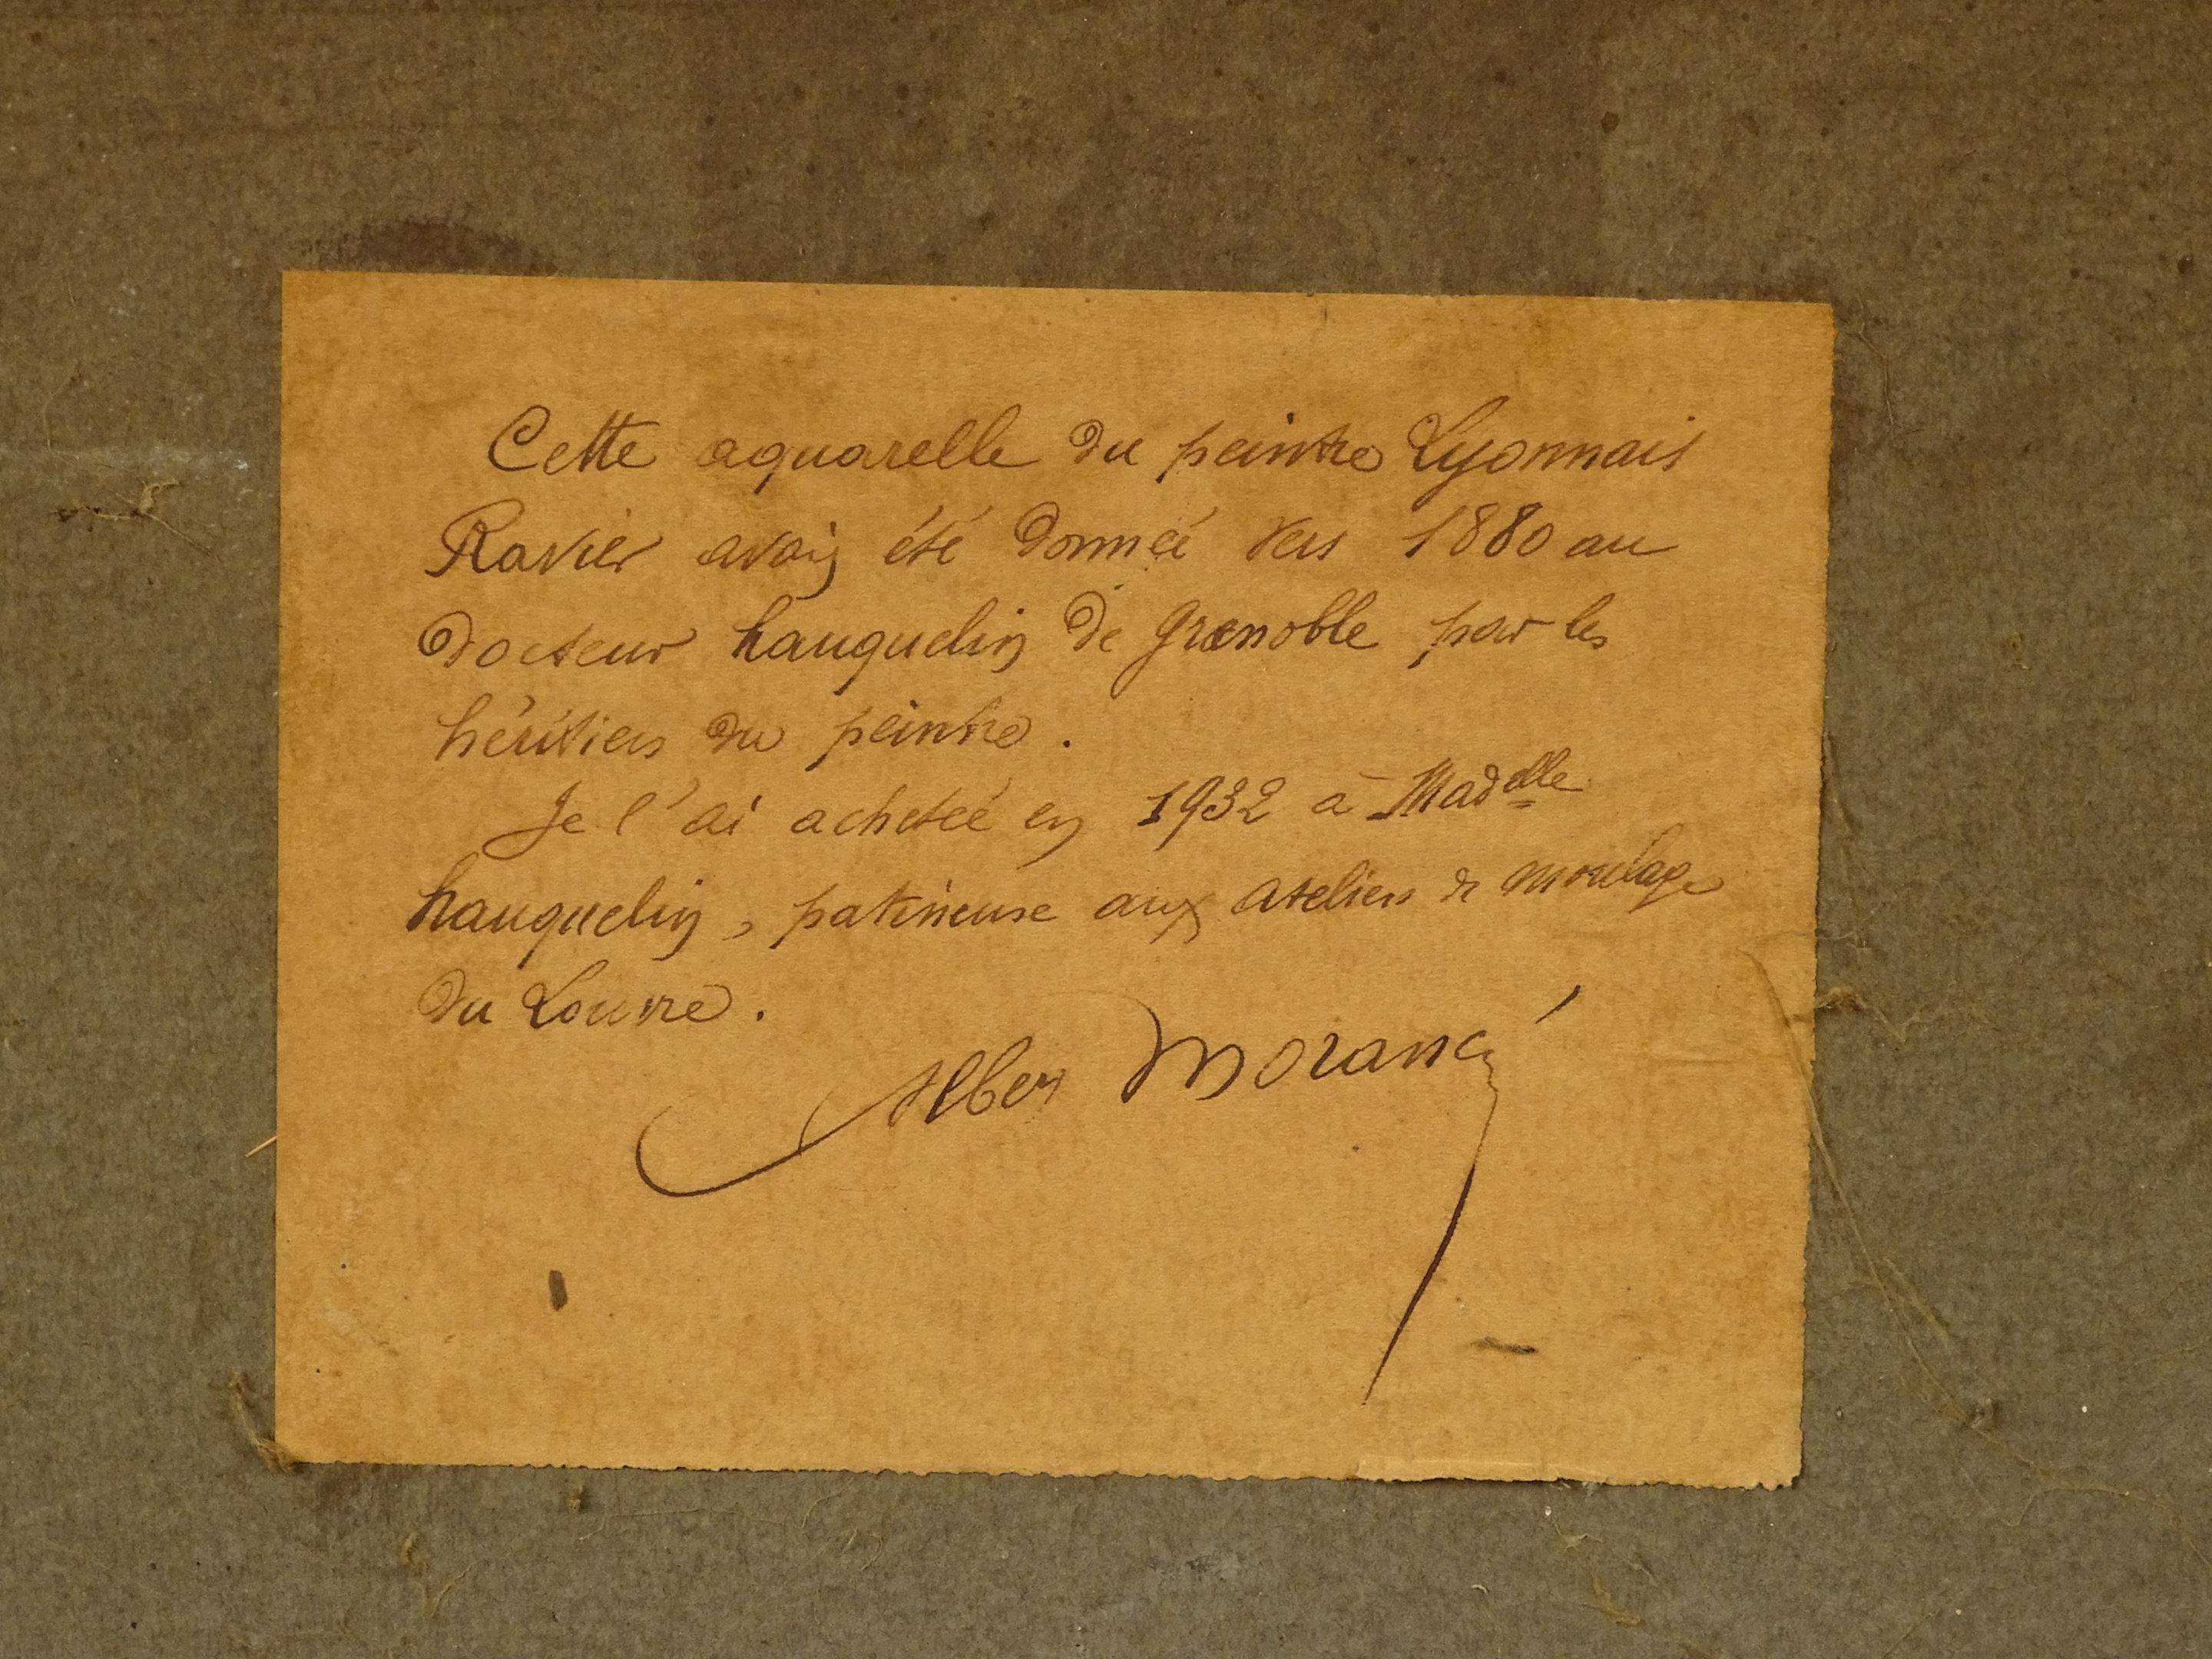 Cette aquarelle du peintre Lyonnais
Ravier avait été donnée vers 1880 au
docteur hauquelin de Grenoble par les
héritiers du peintre.
Je l'ai achetée en 1932 à Madelle
hauquelin, patineuse aux ateliers de moulage
du Louvre.
Albert Morancé